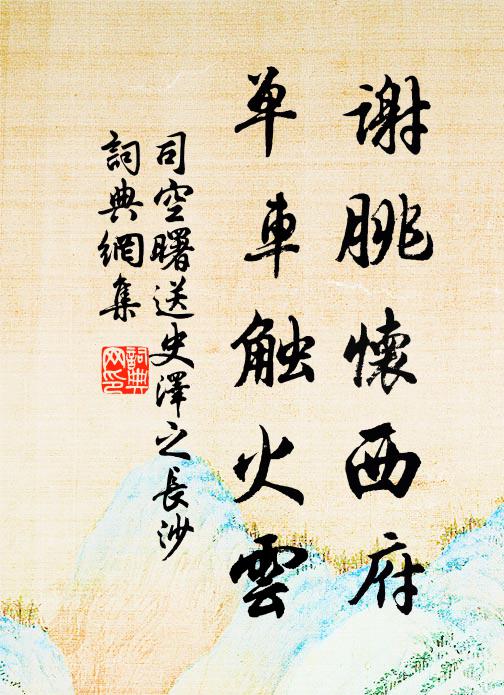 謝脁懷西府
單車触火雲
司空曙送史澤之長沙
詞典網集
詞典网印